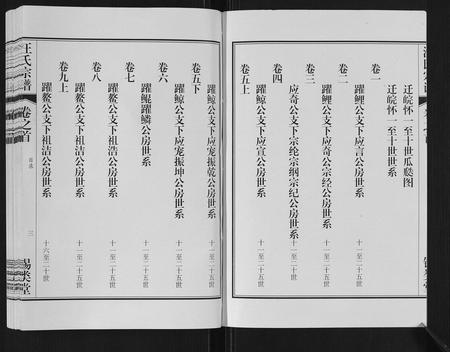 卷一
迁皖怀一至十世瓜瓞图
迁皖怀一至十世系
卷二
躍鲤公支下应言公房世系 十一至二十五世
卷三
躍鲤公支下应奇公宗经公房世系 十一至二十五世
卷四
应奇公支下宗纶宗纲宗纪公房世系 十一至二十五世
卷五上
躍鲸公支下应宣公房世系 十一至二十五世
汪氏宗谱
卷之首
目录
三
锡桊堂
卷五下
躍鲸公支下应宠振乾公房世系 十一至二十五世
卷六
躍鲸公支下应宠振坤公房世系 十一至二十五世
卷七
躍鲲躍鳞公房世系 十一至二十五世
卷八
躍鳌公支下祖浩公房世系 十一至二十五世
躍鳌公支下祖洁公房世系 十一至二十五世
卷九上
躍鳌公支下祖洁公房世系 十六至二十世